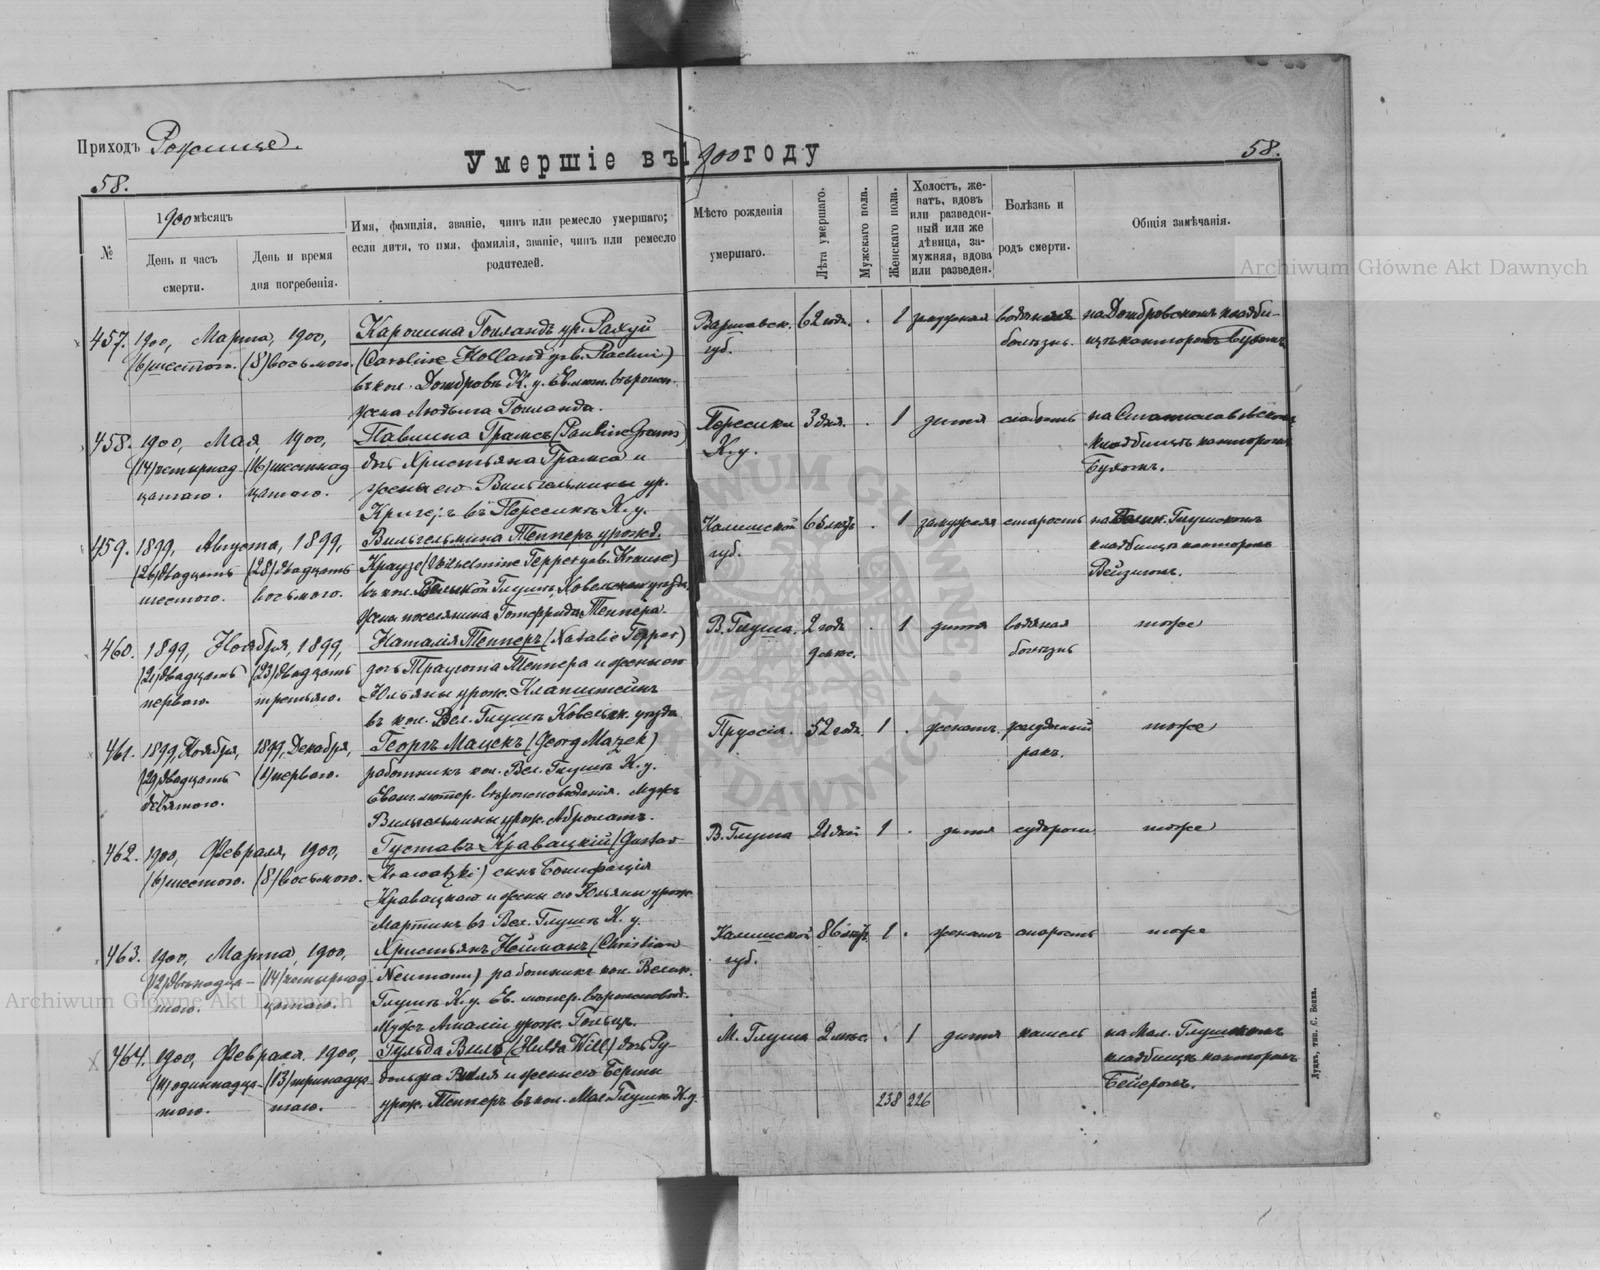 Приходъ Рожище.
Умершіе въ 1900 году
58.
58.
№
1900 мѣсяцъ
День и часъ смерти.
День и время дня погребенія.
Имя, фамилія, званіе, чинъ или ремесло умершаго;
если дитя, то имя, фамилія, званіе, чинъ или ремесло
родителей.
Мѣсто рожденія
умершаго.
Лѣта умершаго.
Мужскаго пола.
Женскаго пола.
Холостъ, же-
натъ, вдовъ
или разведен-
ный или же
дѣвица, за-
мужняя, вдова
или разведен.
Болѣзнь и
родъ смерти.
Общія замѣчанія.
457. 1900, Марта, 1900,
(6) шестого. (8) восьмого.
Каролина Голландъ ур. Рахуй
(Caroline Holland geb. Rachui)
въ кол. Домбровѣ К. у. Ев. лют. вѣроисп.
жена Людвига Голланда.
Варшавск. губ.
62 года. 1 замужняя водяная болѣзнь.
на Домбровскомъ кладби-
щѣ канторомъ Бухомъ
458. 1900, Мая, 1900,
(14) четырнад- (16) шестнад
цатаго. цатаго.
Павлина Грамсъ (Pauline Grams)
дочь Христьяна Грамса и
жены его Вильгельмины ур.
Кригеръ въ Пересикѣ К. у.
Пересики К. у.
3 дня. 1 дитя слабость
на Станиславовскомъ
кладбищѣ канторомъ
Бухомъ.
459. 1899, Августа, 1899,
(26) двадцать (28) двадцать
шестого. восьмого.
Вильгельмина Тепперъ урожд.
Краузе (Wilhelmine Tepper geb. Krause)
въ кол. Великой Глушѣ, Ковельскаго уѣзда.
жена поселянина Готфрида Теппера.
Калишской губ.
65 лѣтъ 1 замужняя старость
на Велик. Глушскомъ
кладбищѣ канторомъ
Вейзигомъ.
460. 1899, Ноября, 1899,
(21) двадцать (23) двадцать
перваго. третьяго.
Наталія Тепперъ (Natalie Tepper)
дочь Траугота Теппера и жены его
Юльяны урож. Клапштейнъ
въ кол. Вел. Глушѣ Ковельск. уѣзда
В. Глуша. 2 года 9 мѣс. 1 дитя водяная болѣзнь тоже
461. 1899, Ноября, 1899, Декабря,
(29) двадцать (1) перваго.
девятаго.
Георгъ Мацекъ (Georg Mazek)
работникъ кол. Вел. Глушѣ К. у.
Еванг. лютер. вѣроисповѣданія. Мужъ
Вильгельмины урож. Абролатъ.
Пруссія. 52 года. 1 женатъ. желудочный ракъ. тоже
462. 1900, Февраля, 1900,
(6) шестого. (8) восьмого.
Густавъ Кравацкій (Gustav
Krawatzki) сынъ Бонифація
Кравацкаго и жены его Юльяны урож.
Мартинъ въ Вел. Глушѣ К. у.
В. Глуша 21 дней 1 дитя судороги тоже
463. 1900, Марта, 1900,
(12) двѣнадца- (14) четырнад-
таго. цатаго.
Христьянъ Нейманъ (Christian
Neumann) работникъ кол. Велик.
Глушѣ К. у. Ев. лютер. вѣроисповѣд.
Мужъ Амаліи урож. Гольцъ.
Калишской губ.
86 лѣтъ. 1 женатъ старость тоже
464. 1900, Февраля, 1900,
(11) одиннадца- (13) тринадца-
таго. таго.
Гульда Вилъ (Hulda Will) дочь Ру-
дольфа Виля и жены его Берты
урож. Тепперъ въ кол. Мал. Глушѣ К. у.
М. Глуша 2 мѣс. 1 дитя кашель
на Мал. Глушскомъ
кладбищѣ канторомъ
Бейеромъ.
238 226
Луцкъ, тип. С. Бонка.
Archiwum Główne Akt Dawnych
Archiwum Główne Akt Dawnych
ARCHIWUM GŁÓWNE AKT DAWNYCH